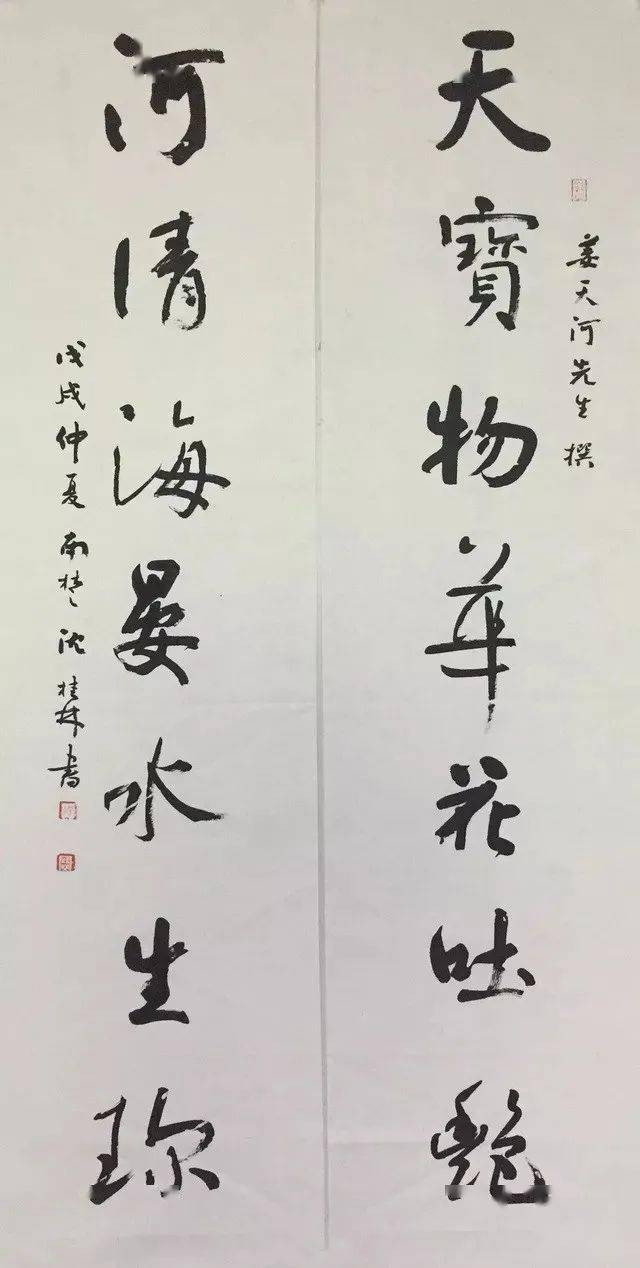 姜天河先生撰
天寶物華花吐艷
河清海晏水生珎
戊戌仲夏南楚沈桂林書